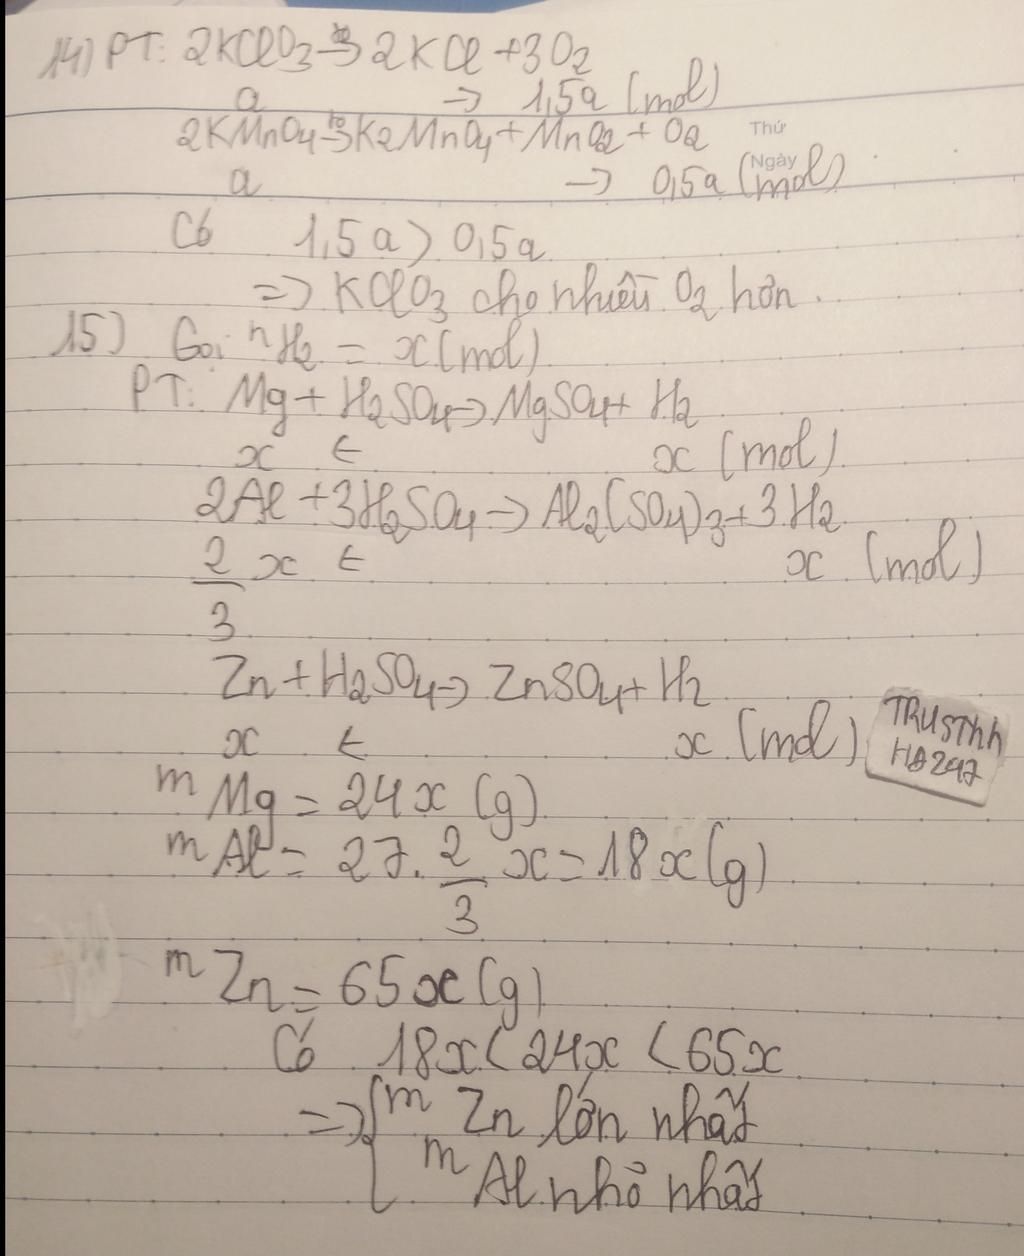 14) PT: 2KClO3 t° → 2KCl + 3O2
a → 1,5a (mol)
2KMnO4 t° → K2MnO4 + MnO2 + O2
Thứ
Ngày
a → 0,5a (mol)
Có 1,5a > 0,5a
=> KClO3 cho nhiều O2 hơn.
15) Gọi nH2 = x (mol)
PT: Mg + H2SO4 → MgSO4 + H2
x ← x (mol)
2Al + 3H2SO4 → Al2(SO4)3 + 3H2
2/3 x ← x (mol)
Zn + H2SO4 → ZnSO4 + H2
x ← x (mol)
TRUSThh
HB247
mMg = 24x (g)
mAl = 27. 2/3 x = 18x (g)
mZn = 65x (g)
Có 18x < 24x < 65x
=> { mZn lớn nhất
mAl nhỏ nhất